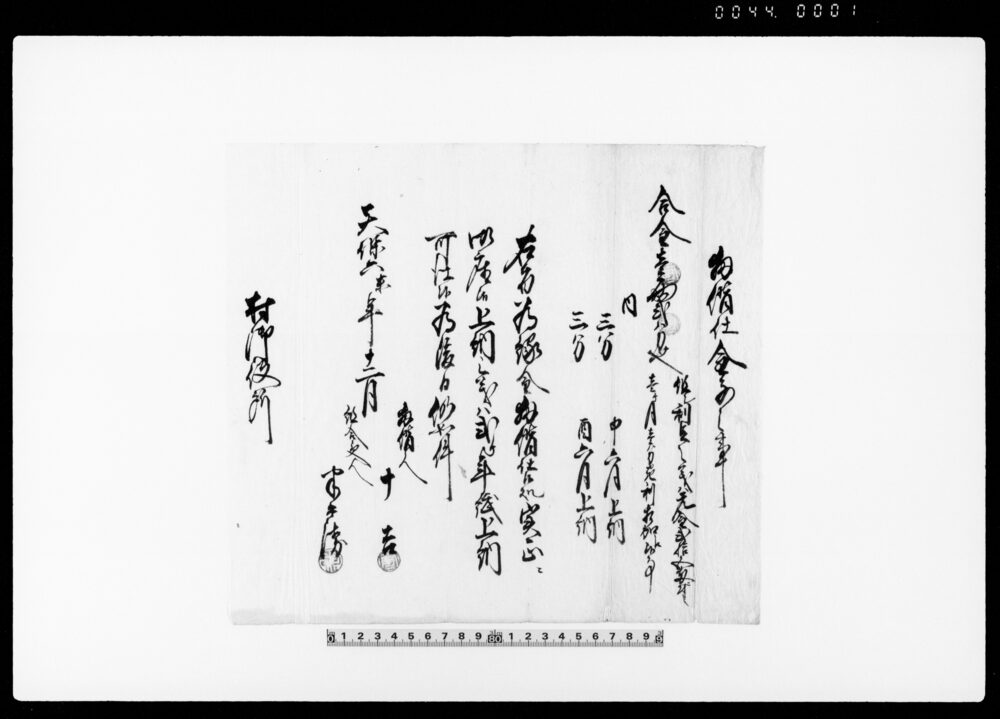 0044. 0001
拝借仕金子之事
合金壱両弐分也
但利足之義ハ元金弐拾五両ニ
壱ヶ月壱分宛利相加候事
内
三分 申六月上納
三分 酉六月上納
右者為縁金拝借仕候処実正ニ
御座候上納之義ハ弐ヶ年賦上納
可仕候為後日仍如件
天保六未年十二月
拝借人 十吉
組合惣代
村御役所
0 1 2 3 4 5 6 7 8 9 1 2 3 4 5 6 7 8 9